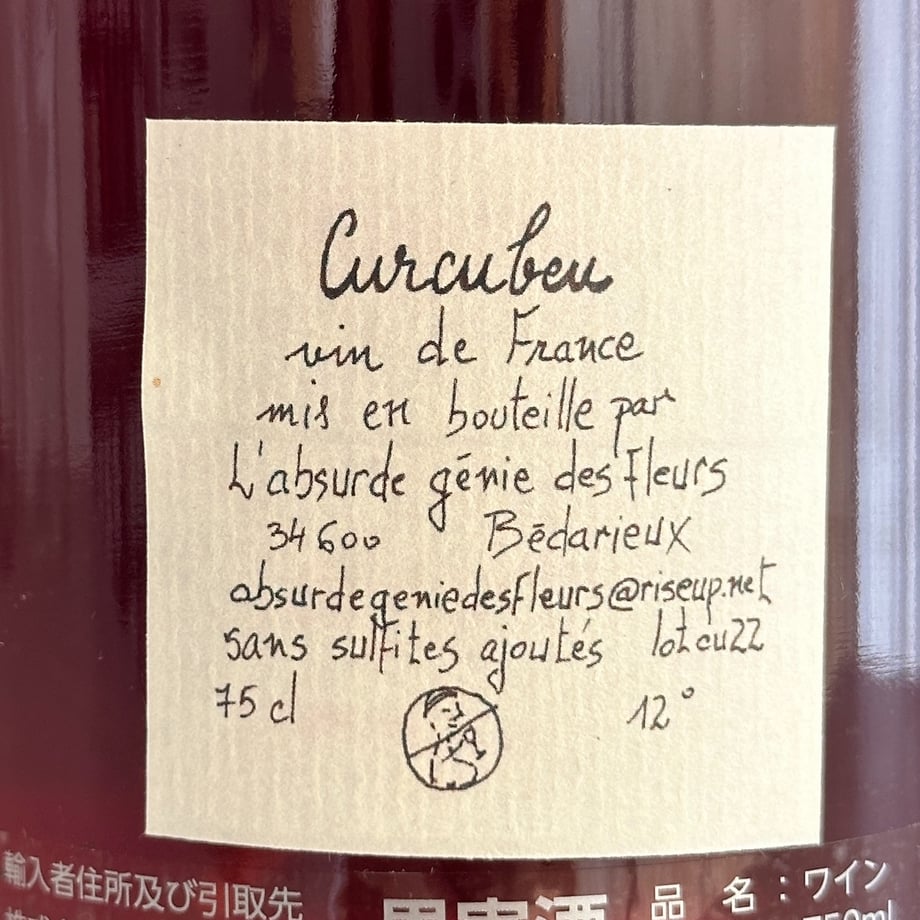 Curcubeu
vin de France
mis en bouteille par
L'absurde génie des fleurs
34600 Bédarieux
absurdegeniedesfleurs@riseup.net
sans sulfites ajoutés lot cu22
75 cl 12°
輸入者住所及び引取先
果実酒 品名:ワイン